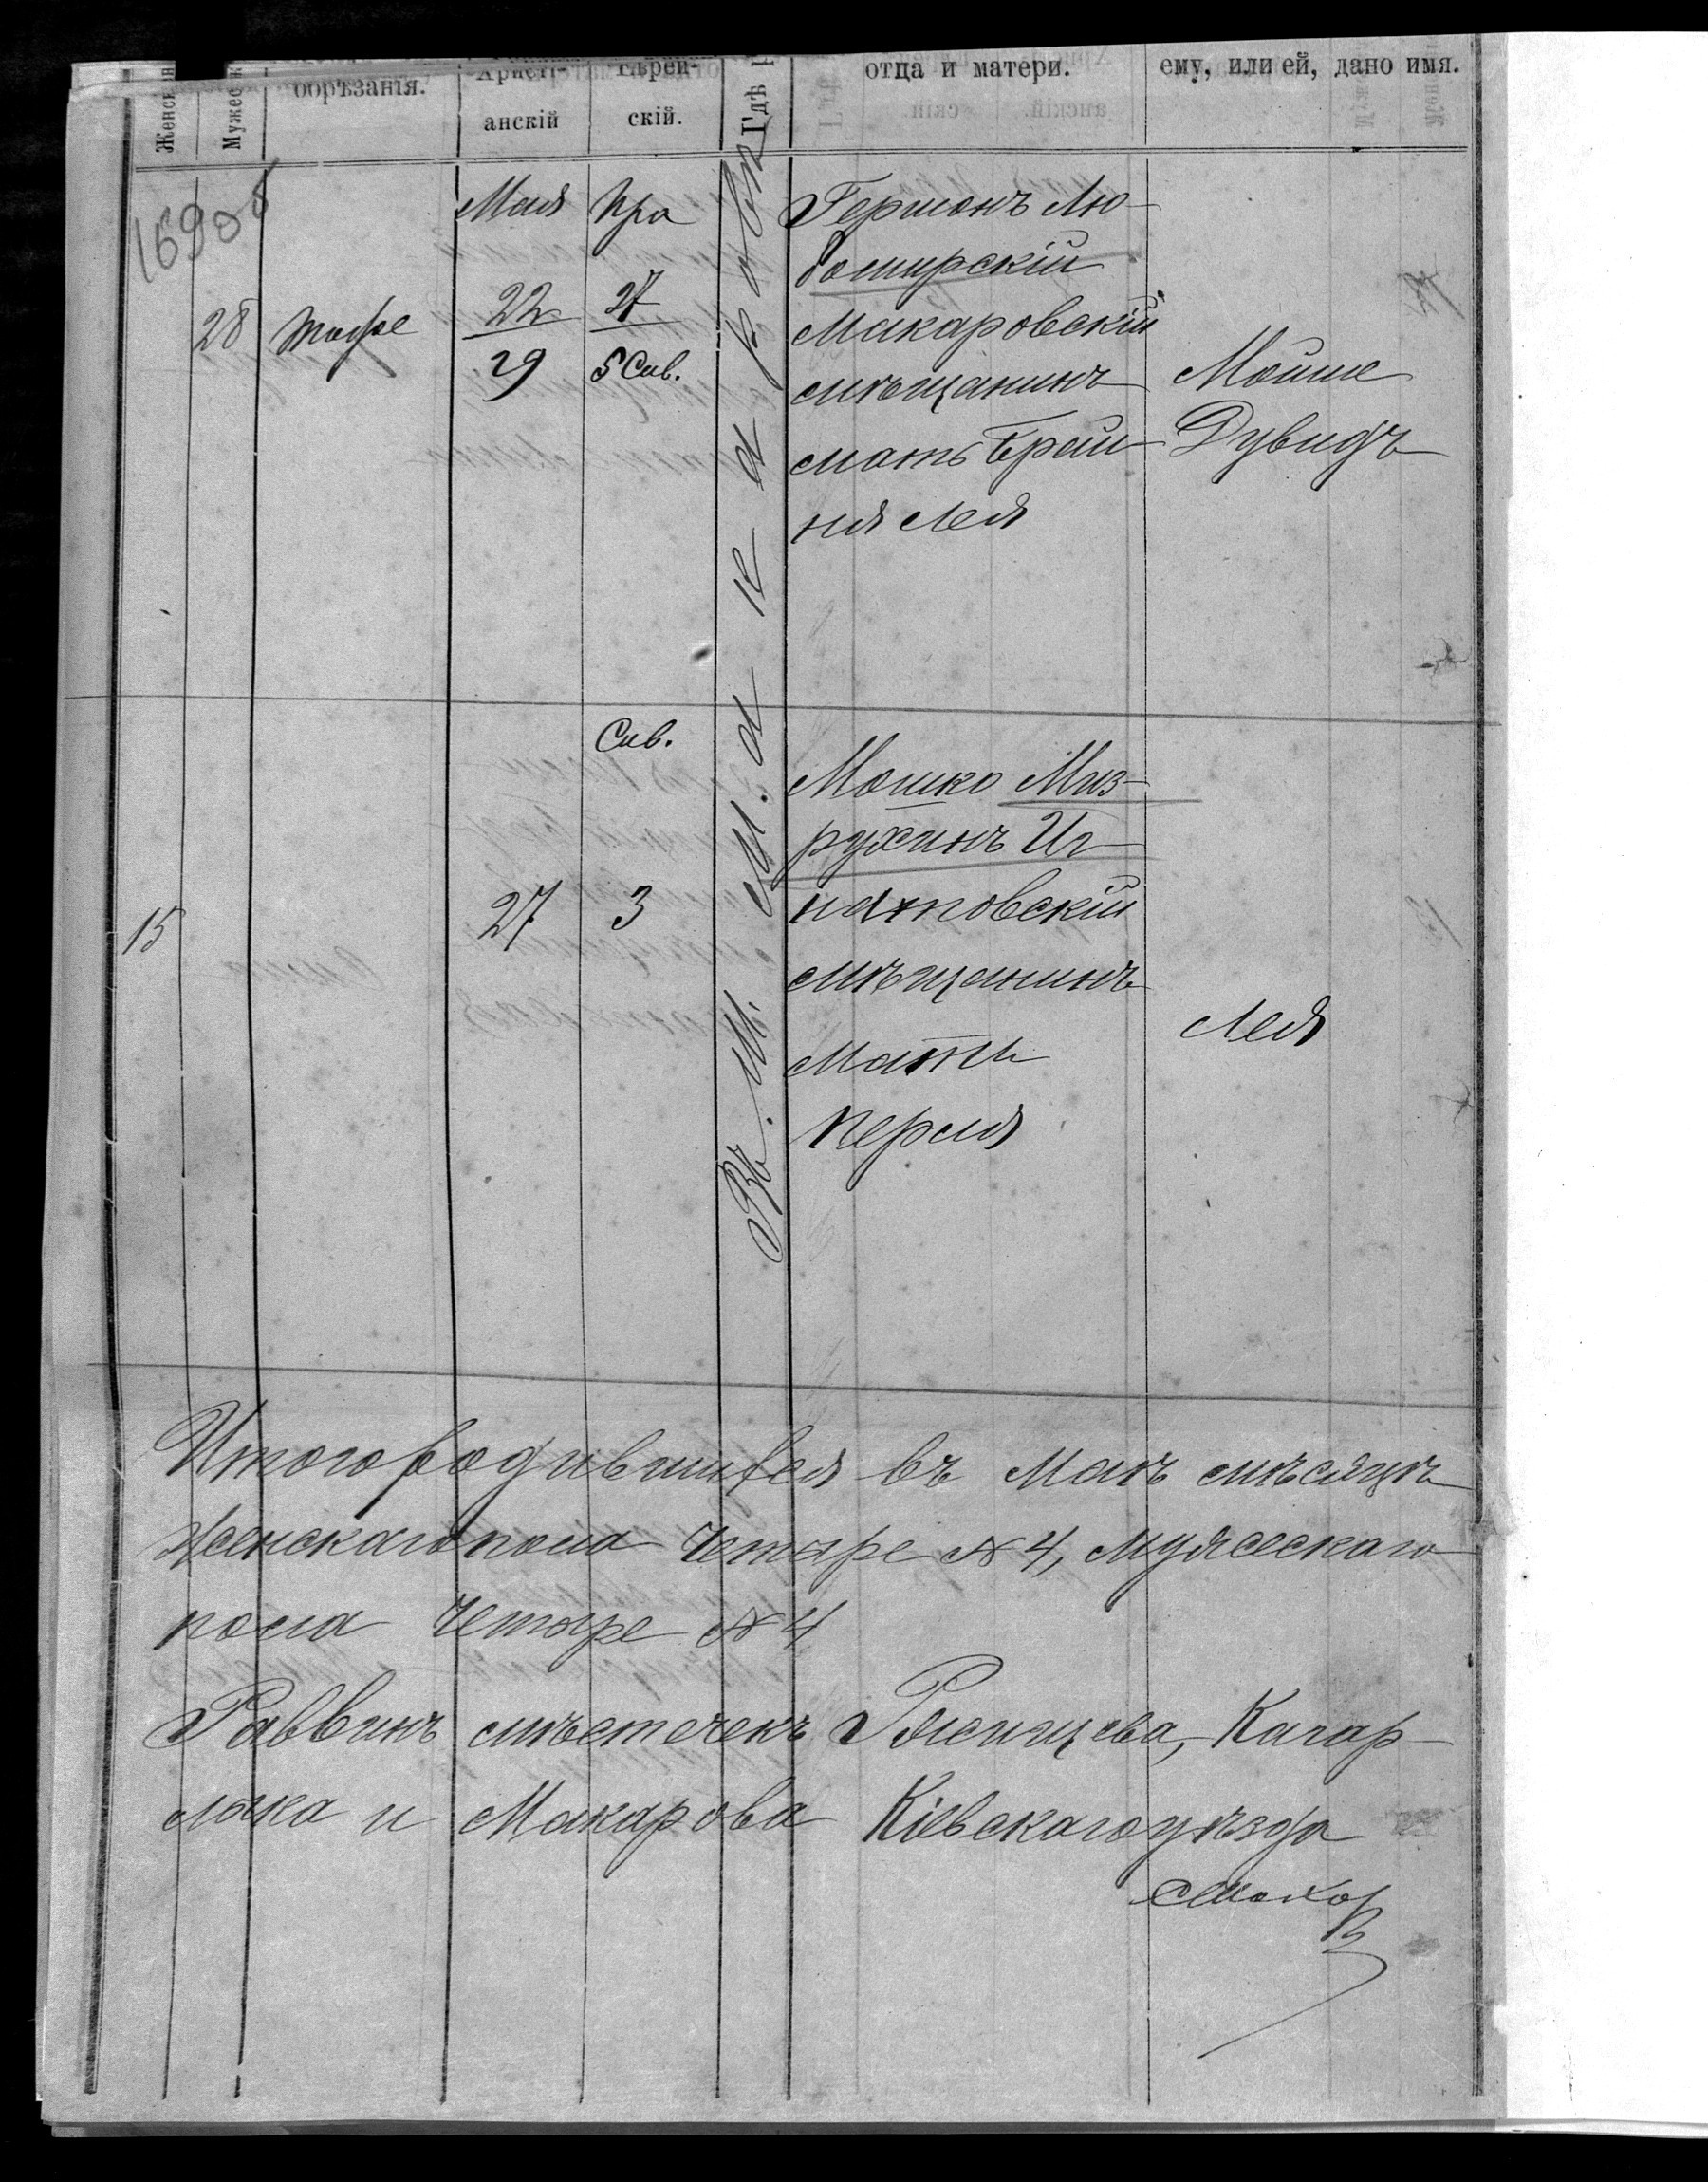 Женск
Мужеск
обрѣзанія.
Христі-
анскій
Еврей-
скій.
Гдѣ р
отца и матери.
ему, или ей, дано имя.
Мая
Ира
28
тоже
22
29
27
5 Сив.
Въ м. Макаровѣ
Гершонъ Лю-
бомирскій
Макаровскій
мѣщанинъ
мать Брей-
ня Лея
Мойше
Дувидъ
Сив.
15
27
3
Мошко Миз-
рухинъ Иг-
натовскій
мѣщанинъ
Мать
Перля
Лея
Итого родившихся въ Маѣ мѣсяцѣ
женскаго пола четыре № 4, мужескаго
пола четыре № 4
Раввинъ мѣстечекъ Ржищева, Кагар-
лыка и Макарова Кіевскаго уѣзда